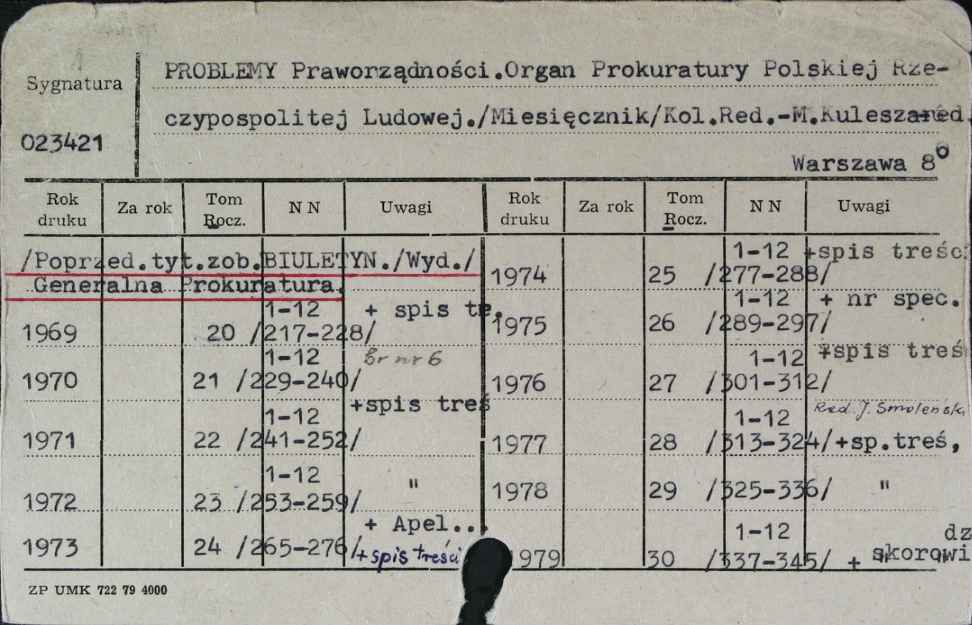 Sygnatura
023421
PROBLEMY Praworządności.Organ Prokuratury Polskiej Rze-
czypospolitej Ludowej./Miesięcznik/Kol.Red.-M.Kulesza-red.
Warszawa 8⁰
Rok druku Za rok Tom Rocz. N N Uwagi Rok druku Za rok Tom Rocz. N N Uwagi
/Poprzed.tyt.zob.BIULETYN./Wyd./
Generalna Prokuratura.
1969 20 1-12 /217-228/ + spis tr.
1970 21 1-12 /229-240/ Br nr 6
1971 22 1-12 /241-252/ +spis treś
1972 23 1-12 /253-259/ "
1973 24 /265-276/ + Apel... + spis treści
1974 25 1-12 /277-288/ +spis treśc
1975 26 1-12 /289-297/ + nr spec.
1976 27 1-12 /301-312/ +spis treś
1977 28 1-12 /313-324/ Red. J. Smoleński +sp.treś,
1978 29 /325-336/ "
1979 30 1-12 /337-345/ + dz skorowi
ZP UMK 722 79 4000